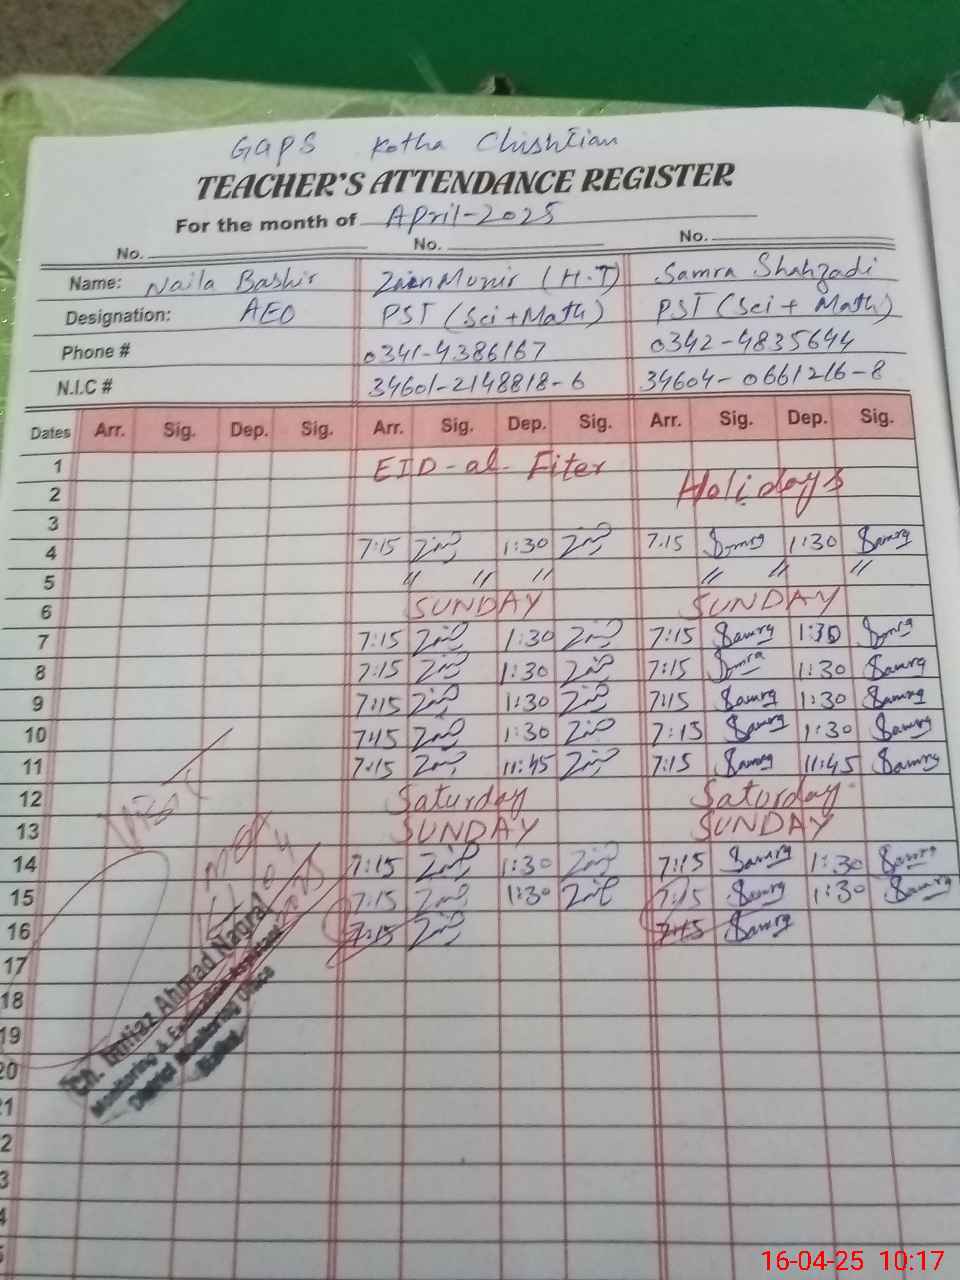 GGPS Kotha Chishtian
TEACHER'S ATTENDANCE REGISTER
For the month of April-2025
No. No. No.
Name: Naila Bashir Zain Munir (H.T) Samra Shahzadi
Designation: AEO PST (Sci + Math) PST (Sci + Math)
Phone # 0341-4386167 0342-4835644
N.I.C # 34601-2148818-6 34604-0661216-8
Dates Arr. Sig. Dep. Sig. Arr. Sig. Dep. Sig. Arr. Sig. Dep. Sig.
1 EID-al-Fiter
2 Holidays
3
4 7:15 1:30 7:15 Samra 1:30 Samra
5 " " " " " "
6 SUNDAY SUNDAY
7 7:15 1:30 7:15 Samra 1:30 Samra
8 7:15 1:30 7:15 Samra 1:30 Samra
9 7:15 1:30 7:15 Samra 1:30 Samra
10 7:15 1:30 7:15 Samra 1:30 Samra
11 7:15 11:45 7:15 Samra 11:45 Samra
12 Saturday Saturday
13 SUNDAY SUNDAY
14 7:15 1:30 7:15 Samra 1:30 Samra
15 7:15 1:30 7:15 Samra 1:30 Samra
16 7:15 7:15 Samra
17
18
19
20
21
2
3
4
5
Visit
Ch. Imtiaz Ahmad Nagra
Monitoring & Evaluation Assistant
District Monitoring Office
16-04-25 10:17